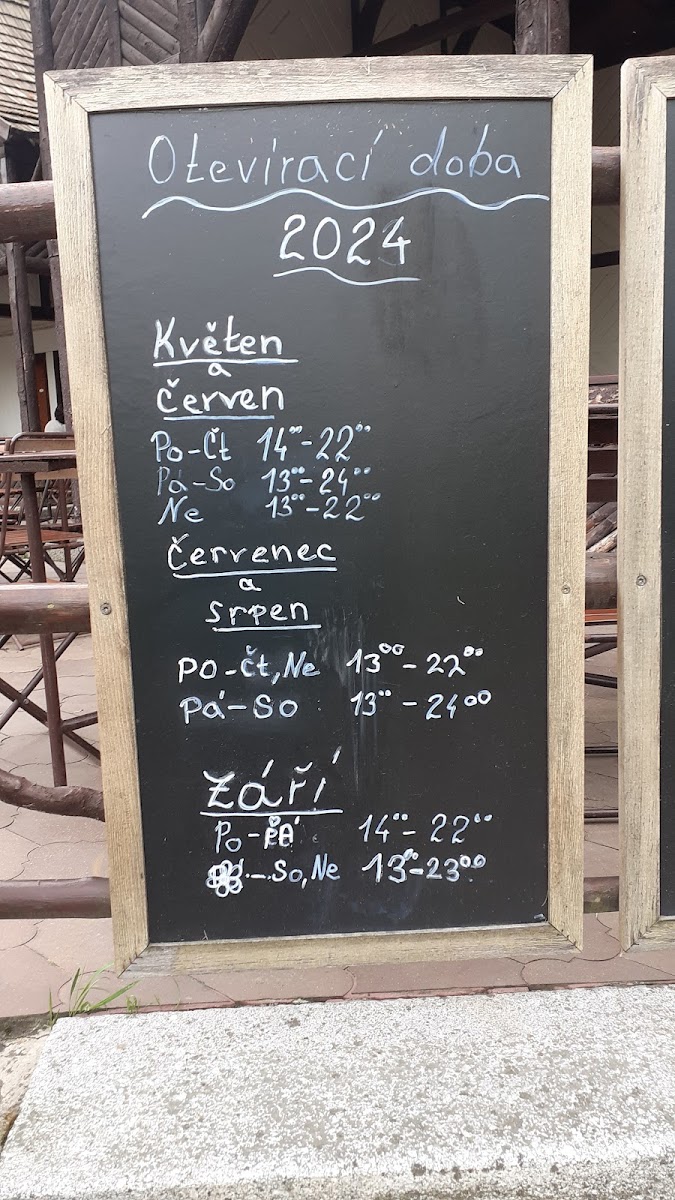 Otevírací doba
2024
Květen
a
červen
Po-Čt 14⁰⁰-22⁰⁰
Pá-So 13⁰⁰-24⁰⁰
Ne 13⁰⁰-22⁰⁰
Červenec
a
srpen
PO-Čt, Ne 13⁰⁰-22⁰⁰
Pá-So 13⁰⁰-24⁰⁰
Září
Po-PÁ 14⁰⁰-22⁰⁰
-So, Ne 13⁰⁰-23⁰⁰